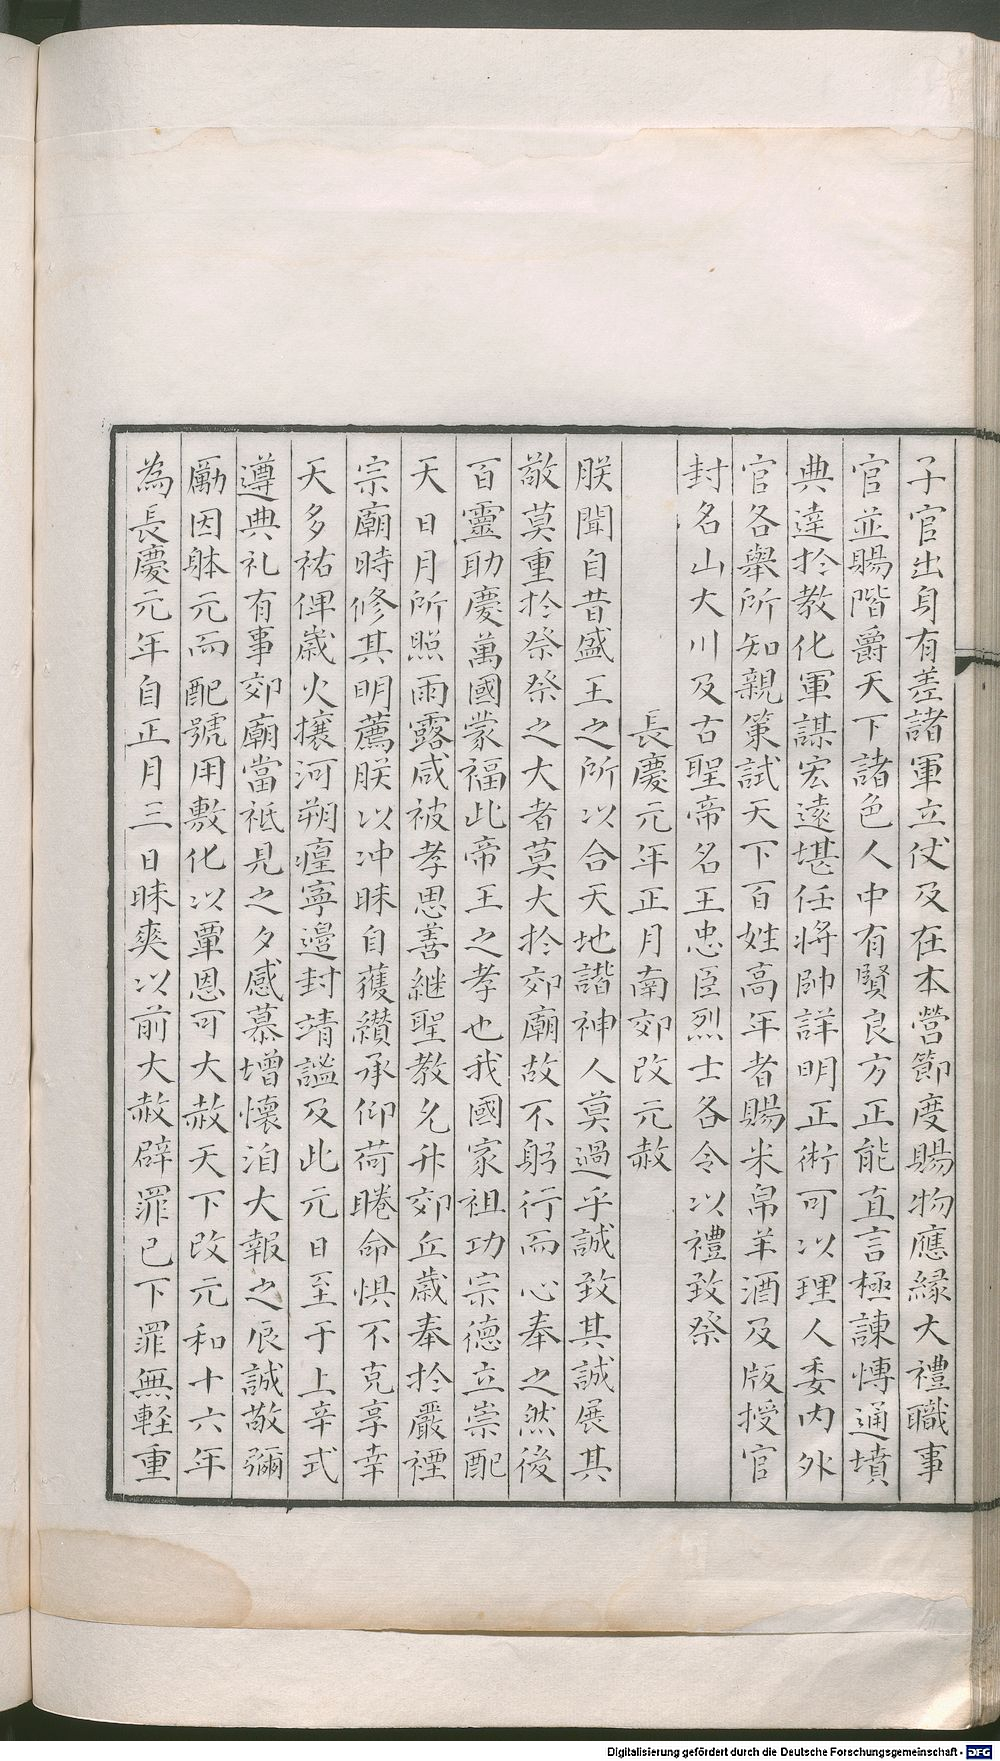 子官出身有差諸軍立仗及在本營節度賜物應緣大禮職事
官並賜階爵天下諸色人中有賢良方正能直言極諫愽通墳
典達扵教化軍謀宏遠堪任將帥詳明正術可以理人委內外
官各舉所知親策試天下百姓高年者賜米帛羊酒及版授官
封名山大川及古聖帝名王忠臣烈士各令以禮致祭
長慶元年正月南郊改元赦
朕聞自昔盛王之所以合天地諧神人莫過乎誠致其誠展其
敬莫重扵祭祭之大者莫大扵郊廟故不躬行而心奉之然後
百靈助慶萬國蒙福此帝王之孝也我國家祖功宗德立崇配
天日月所照雨露咸被孝思善継聖教允升郊丘歲奉扵嚴禋
宗廟時修其明薦朕以冲昧自獲纘承仰荷睠命惧不克享幸
天多祐俾歲火攘河朔癨寧邊封靖謐及此元日至于上辛式
遵典礼有事郊廟當祗見之夕感慕增懷洎大報之辰誠敬彌
勵因躰元而配號用敷化以覃恩可大赦天下改元和十六年
為長慶元年自正月三日昧爽以前大赦辟罪已下罪無輕重
Digitalisierung gefördert durch die Deutsche Forschungsgemeinschaft - DFG